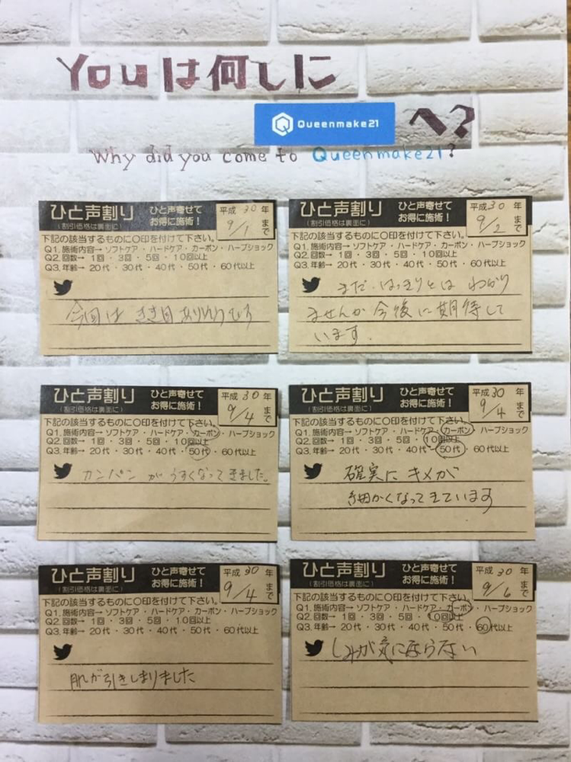 Youは何しに
Queenmake21 へ?
Why did you come to Queenmake21?
ひと声割り ひと声寄せて 平成30年
(割引価格は裏面に) お得に施術! 9/1まで
下記の該当するものに〇印を付けて下さい。
Q1.施術内容→ ソフトケア・ハードケア・カーボン・ハーブショック
Q2.回数→ 1回・3回・5回・10回以上
Q3.年齢→ 20代・30代・40代・50代・60代以上
今回は
ひと声割り ひと声寄せて 平成30年
(割引価格は裏面に) お得に施術! 9/2まで
下記の該当するものに〇印を付けて下さい。
Q1.施術内容→ ソフトケア・ハードケア・カーボン・ハーブショック
Q2.回数→ 1回・3回・5回・10回以上
Q3.年齢→ 20代・30代・40代・50代・60代以上
まだ はっきりとは わかり
ませんが 今後に期待して
います。
ひと声割り ひと声寄せて 平成30年
(割引価格は裏面に) お得に施術! 9/4まで
下記の該当するものに〇印を付けて下さい。
Q1.施術内容→ ソフトケア・ハードケア・カーボン・ハーブショック
Q2.回数→ 1回・3回・5回・10回以上
Q3.年齢→ 20代・30代・40代・50代・60代以上
カンパンがうすくなってきました。
ひと声割り ひと声寄せて 平成30年
(割引価格は裏面に) お得に施術! 9/4まで
下記の該当するものに〇印を付けて下さい。
Q1.施術内容→ ソフトケア・ハードケア・カーボン・ハーブショック
Q2.回数→ 1回・3回・5回・10回以上
Q3.年齢→ 20代・30代・40代・50代・60代以上
確実にキメが
細かくなってきています
ひと声割り ひと声寄せて 平成30年
(割引価格は裏面に) お得に施術! 9/4まで
下記の該当するものに〇印を付けて下さい。
Q1.施術内容→ ソフトケア・ハードケア・カーボン・ハーブショック
Q2.回数→ 1回・3回・5回・10回以上
Q3.年齢→ 20代・30代・40代・50代・60代以上
肌が引きしまりました
ひと声割り ひと声寄せて 平成30年
(割引価格は裏面に) お得に施術! 9/6まで
下記の該当するものに〇印を付けて下さい。
Q1.施術内容→ ソフトケア・ハードケア・カーボン・ハーブショック
Q2.回数→ 1回・3回・5回・10回以上
Q3.年齢→ 20代・30代・40代・50代・60代以上
しみが気にならない